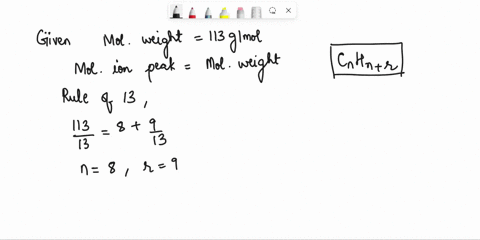 Given Mol. weight = 113 g/mol
Mol. ion peak = Mol. weight
CnHn+r
Rule of 13,
113/13 = 8 + 9/13
n = 8, r = 9